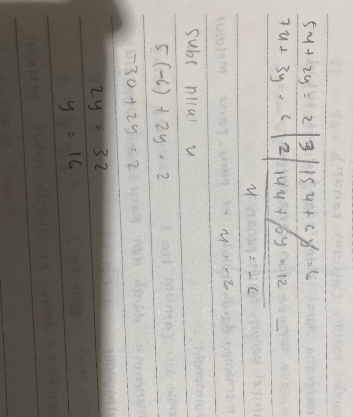 5x + 2y = 2 | 3 | 15x + 6y = 6
7x + 3y = 6 | 2 | 14x + 6y = 12 -
x = -6
Subs nilai x
5(-6) + 2y = 2
-30 + 2y = 2
2y = 32
y = 16